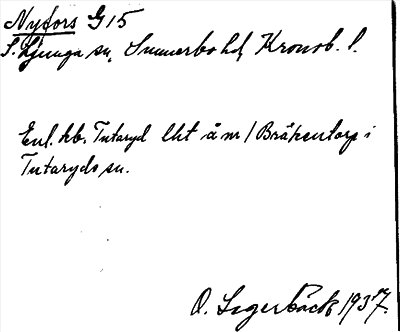 Nyfors G 15
S. Ljunga sn, Sunnerbo hd, Kronob. l.
Enl. kb. Tutaryd lht å nr 1 Bråkentorp i
Tutaryds sn.
O. Lagerbäck 1937.